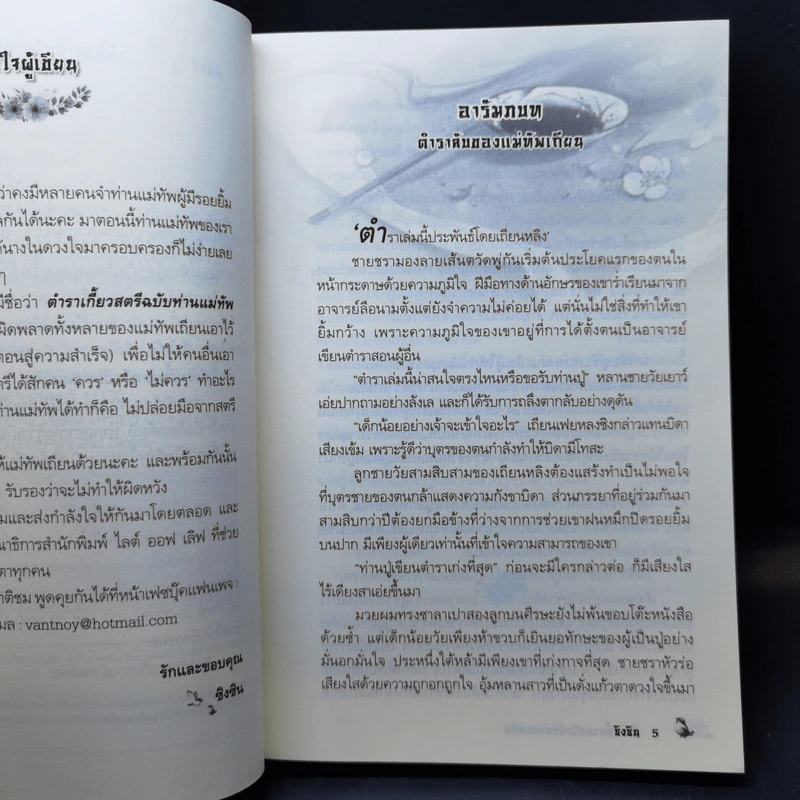 ใจผู้เขียน
ว่าคงมีหลายคนจำท่านแม่ทัพผู้มีรอยยิ้ม
กันได้นะคะ มาตอนนี้ท่านแม่ทัพของเรา
นางในดวงใจมาครอบครองก็ไม่ง่ายเลย
ๆ
มีชื่อว่า ตำราเกี้ยวสตรีฉบับท่านแม่ทัพ
ผิดพลาดทั้งหลายของแม่ทัพเถียนเอาไว้
ตอนสู่ความสำเร็จ) เพื่อไม่ให้คนอื่นเอา
ตรีได้สักคน ‘ควร’ หรือ ‘ไม่ควร’ ทำอะไร
ท่านแม่ทัพได้ทำก็คือ ไม่ปล่อยมือจากสตรี
ห้แม่ทัพเถียนด้วยนะคะ และพร้อมกันนั้น
รับรองว่าจะไม่ทำให้ผิดหวัง
มและส่งกำลังใจให้กันมาโดยตลอด และ
ณาธิการสำนักพิมพ์ ไลต์ ออฟ เลิฟ ที่ช่วย
ตาทุกคน
าติชม พูดคุยกันได้ที่หน้าเฟซบุ๊คแฟนเพจ :
มล : vantnoy@hotmail.com
รักและขอบคุณ
ซิงซิน
อารัมภบท
ตำราลับของแม่ทัพเถียน
‘ตำราเล่มนี้ประพันธ์โดยเถียนหลิง’
ชายชรามองลายเส้นตวัดพู่กันเริ่มต้นประโยคแรกของตนใน
หน้ากระดาษด้วยความภูมิใจ ฝีมือทางด้านอักษรของเขาร่ำเรียนมาจาก
อาจารย์ลือนามตั้งแต่ยังจำความไม่ค่อยได้ แต่นั่นไม่ใช่สิ่งที่ทำให้เขา
ยิ้มกว้าง เพราะความภูมิใจของเขาอยู่ที่การได้ตั้งตนเป็นอาจารย์
เขียนตำราสอนผู้อื่น
“ตำราเล่มนี้น่าสนใจตรงไหนหรือขอรับท่านปู่” หลานชายวัยเยาว์
เอ่ยปากถามอย่างลังเล และก็ได้รับการถลึงตากลับอย่างดุดัน
“เด็กน้อยอย่างเจ้าจะเข้าใจอะไร” เถียนเฟยหลงชิงกล่าวแทนบิดา
เสียงเข้ม เพราะรู้ดีว่าบุตรของตนกำลังทำให้บิดามีโทสะ
ลูกชายวัยสามสิบสามของเถียนหลิงต้องแสร้งทำเป็นไม่พอใจ
ที่บุตรชายของตนกล้าแสดงความกังขาบิดา ส่วนภรรยาที่อยู่ร่วมกันมา
สามสิบกว่าปีต้องยกมือข้างที่ว่างจากการช่วยเขาฝนหมึกปิดรอยยิ้ม
บนปาก มีเพียงผู้เดียวเท่านั้นที่เข้าใจความสามารถของเขา
“ท่านปู่เขียนตำราเก่งที่สุด” ก่อนจะมีใครกล่าวต่อ ก็มีเสียงใส
ไร้เดียงสาเอ่ยขึ้นมา
มวยผมทรงซาลาเปาสองลูกบนศีรษะยังไม่พ้นขอบโต๊ะหนังสือ
ด้วยซ้ำ แต่เด็กน้อยวัยเพียงห้าขวบก็เยินยอทักษะของผู้เป็นปู่อย่าง
มั่นอกมั่นใจ ประหนึ่งใต้หล้ามีเพียงเขาที่เก่งกาจที่สุด ชายชราหัวร่อ
เสียงใสด้วยความถูกอกถูกใจ อุ้มหลานสาวที่เป็นดั่งแก้วตาดวงใจขึ้นมา
ซิงซิน 5